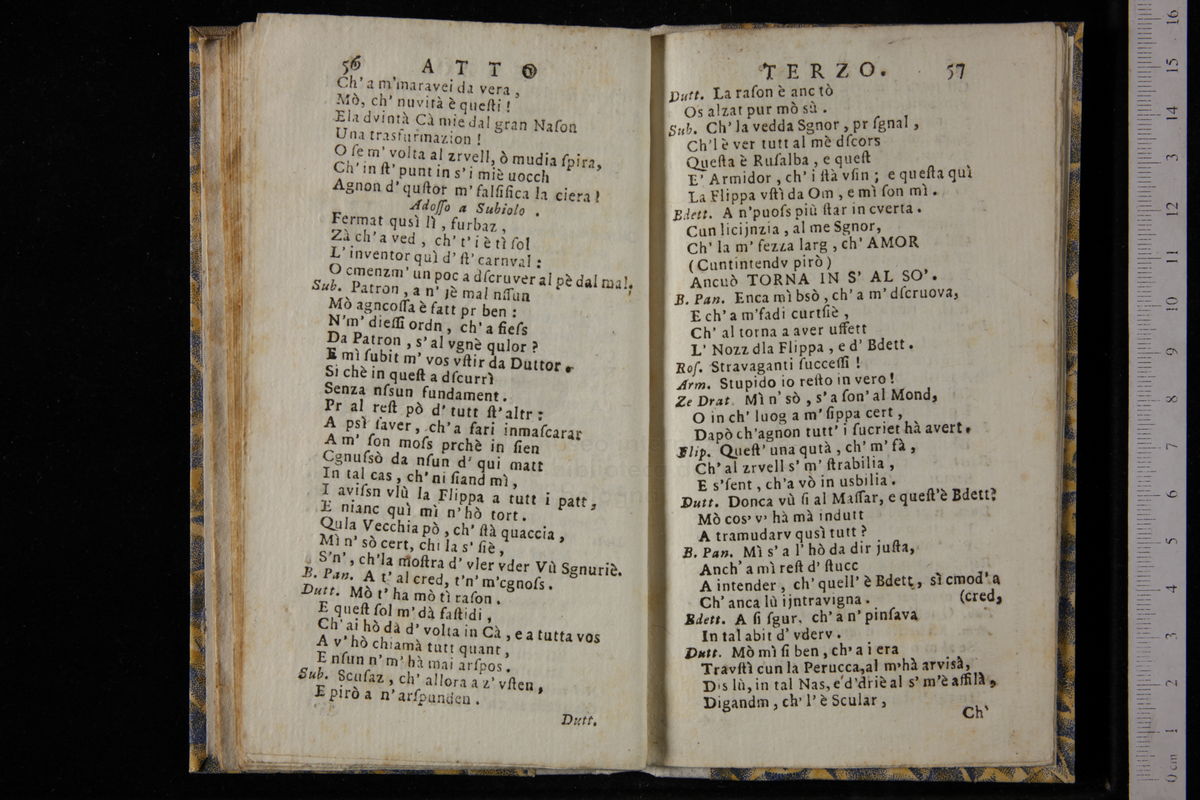 56 ATTO
Ch' a m'maravei da vera,
Mò, ch' nuvità è questi!
Ela dvintà Cà mie dal gran Nason
Una trasfurmazion!
O se m' volta al zrvell, ò mudia spira,
Ch' in st' punt in s' i miè uocch
Agnon d' qustor m' falsifica la ciera!
Adosso a Subiolo.
Fermat qusì lì, furbaz,
Zà ch' a ved, ch' t' i è tì sol
L' inventor quì d' st' carnval:
O cmenzm' un poc a dscruver al pè dal mal.
Sub. Patron, a n' jè mal nssun
Mò agncossa è fatt pr ben:
N'm' diessi ordn, ch' a fiess
Da Patron, s' al vgnè qulor?
E mì subit m' vos vstir da Duttor.
Si chè in quest a dscurrì
Senza nssun fundament.
Pr al rest pò d' tutt st' altr:
A psì saver, ch' a fari inmascarar
A m' son moss prchè in sien
Cgnussò da nsun d' qui matt
In tal cas, ch' ni siand mì,
I avissn vlù la Flippa a tutt i patt,
E nianc quì mì n' hò tort.
Qula Vecchia pò, ch' stà quaccia,
Mì n' sò cert, chi la s' siè,
S'n', ch'la mostra d' vler vder Vù Sgnuriè.
B. Pan. A t' al cred, t'n' m'cgnoss.
Dutt. Mò t' ha mò tì rason.
E quest sol m' dà fastidi,
Ch' ai hò dà d' volta in Cà, e a tutta vos
A v' hò chiamà tutt quant,
E nsun n' m' hà mai arspos.
Sub. Scusaz, ch' allora a z' vsten,
E pirò a n' arspunden.
Dutt.
TERZO. 57
Dutt. La rason è anc tò
Os alzat pur mò sù.
Sub. Ch' la vedda Sgnor, pr sgnal,
Ch'l è ver tutt al mè dscors
Questa è Rusalba, e quest
E' Armidor, ch' i stà vsin; e questa quì
La Flippa vstì da Om, e mì son mì.
Bdett. A n'puoss più star in cverta.
Cun licijnzia, al me Sgnor,
Ch' la m' fezza larg, ch' AMOR
(Cuntintendv pirò)
Ancuò TORNA IN S' AL SO'.
B. Pan. Enca mì bsò, ch' a m' dscruova,
E ch' a m'fadi curtsiè,
Ch' al torna a aver uffett
L' Nozz dla Flippa, e d' Bdett.
Ros. Stravaganti successi!
Arm. Stupido io resto in vero!
Ze Drat. Mì n' sò, s' a son' al Mond,
O in ch' luog a m' sippa cert,
Dapò ch'agnon tutt' i sucriet hà avert.
Flip. Quest' una qutà, ch' m' fà,
Ch' al zrvell s' m' strabilia,
E s'sent, ch'a vò in usbilia.
Dutt. Donca vù si al Massar, e quest'è Bdett?
Mò cos' v' hà mà indutt
A tramudarv qusì tutt?
B. Pan. Mì s' a l' hò da dir justa,
Anch' a mì rest d' stucc
A intender, ch' quell' è Bdett, sì cmod' a
Ch' anca lù ijntravigna. (cred,
Bdett. A si sgur, ch' a n' pinsava
In tal abit d' vderv.
Dutt. Mò mì si ben, ch' a i era
Travstì cun la Perucca, al m'hà arvisà,
Dis lù, in tal Nas, e d'driè al s' m'è affilà,
Digandm, ch' l' è Scular,
Ch'